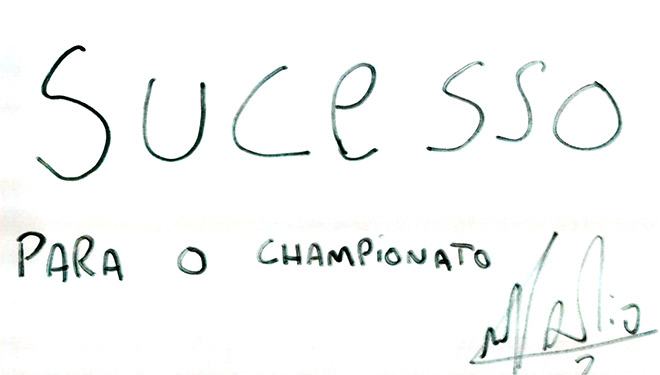 SUCeSSO
PARA O CHAMPiONATO